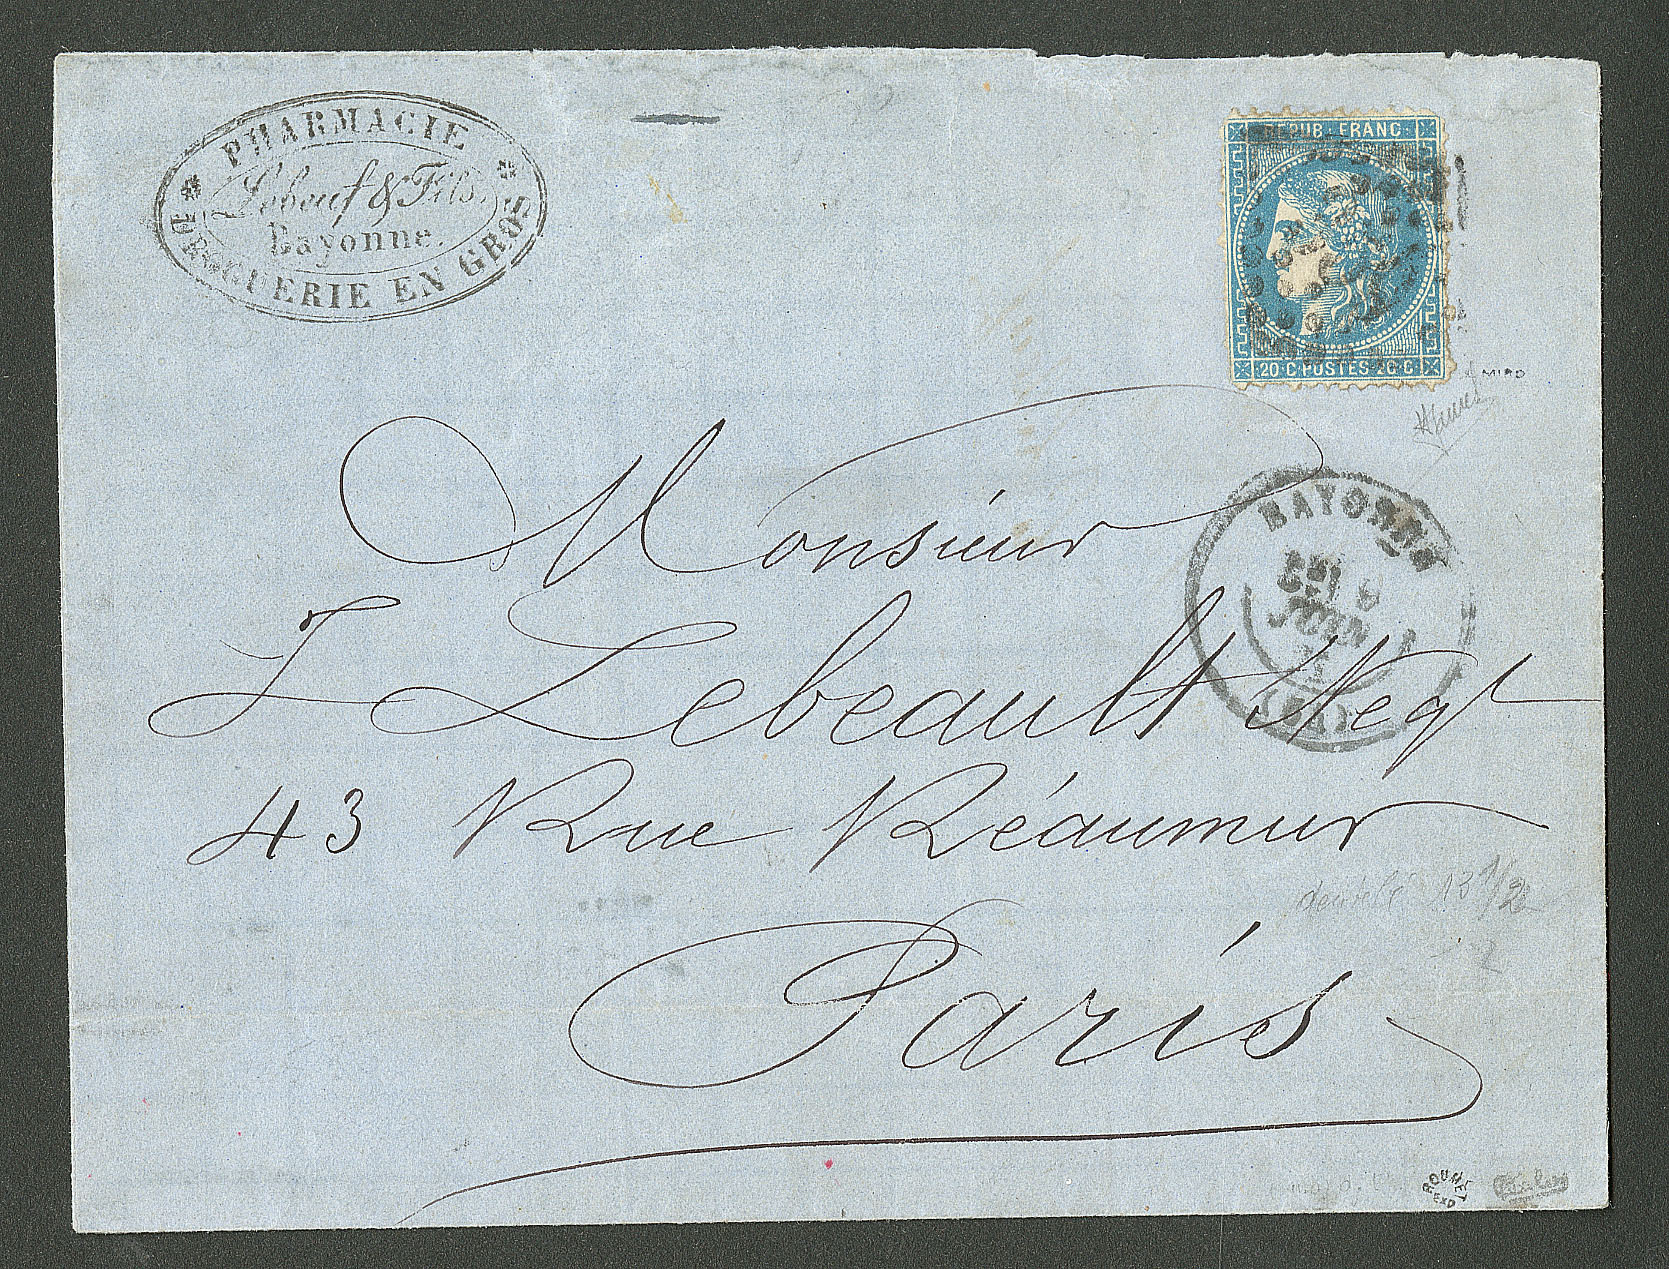 PHARMACIE
Lebeuf & Fils.
Bayonne.
DROGUERIE EN GROS
REPUB. FRANC.
20 C POSTES 20 C
MIRO
BAYONNE
JUIN
71
Monsieur
J Lebeault Negt
43 Rue Réaumur
dentelé 13 1/2
Paris
ROUMET
EXP